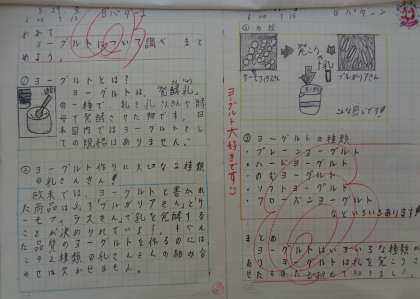 めあて
ヨーグルトについて調べ まと
めよう。
①ヨーグルトとは?
ヨーグルトは、発酵乳
の一種で 乳に乳さんきんや酵
母で発酵させた物です。日
本国内ではヨーグルトとし
ての規格はありません。
②ヨーグルト作りに大切な2種類
の乳さんきん!
欧米では、ヨーグルトと書かれ
た商品は、ブルガリアきんとサ
ーモフィラスきんで乳を発酵する
ことが決められています。
た品質のヨーグルトを作るのには
この2種類の乳さんきんの組み合
わせは欠かせません。
ヨーグルト大好きです
Bパターン
サーモフィラスきん
発こう
乳
ブルガリアきん
こんな感じです!
ヨーグルトの種類
・プレーンヨーグルト
・ハードヨーグルト
・のむヨーグルト
・ソフトヨーグルト
・フローズンヨーグルト
などいろいろあります!
まとめ
ヨーグルトはいろいろな種類が
あり ヨーグルトは乳を発こうさ